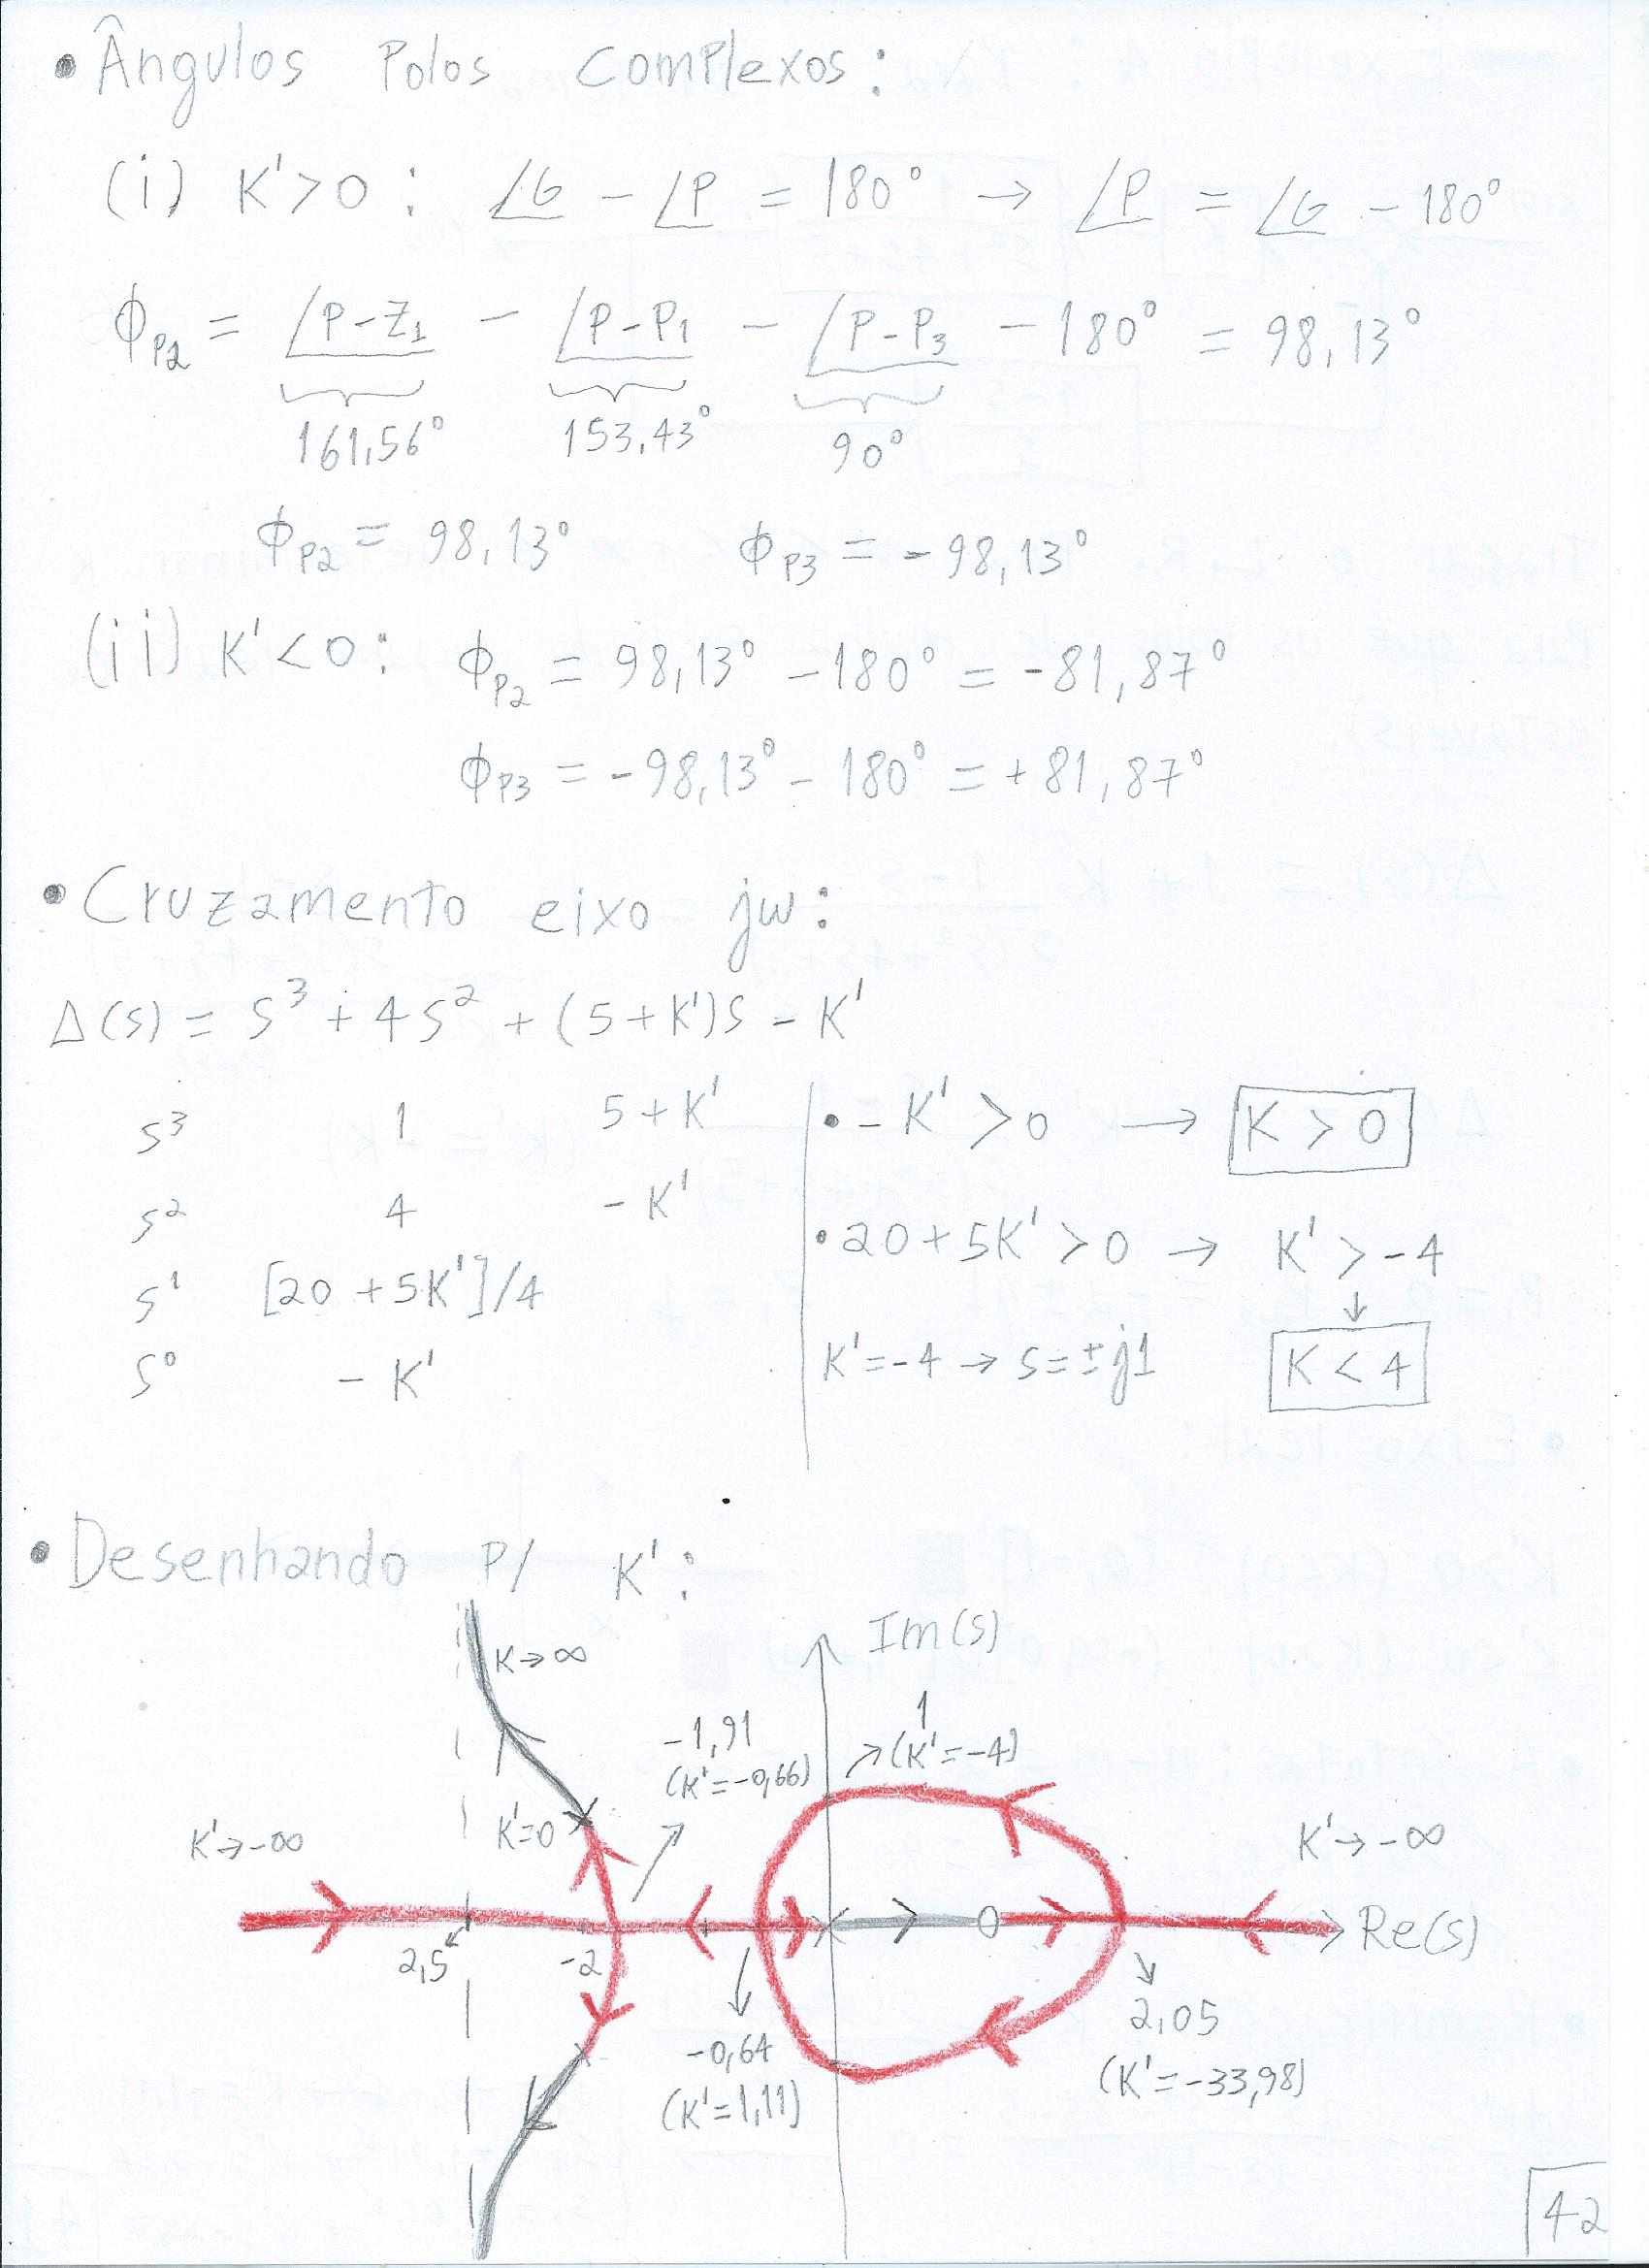 • Ângulos Polos Complexos:
(i) K'>0: ∠G - ∠P = 180° → ∠P = ∠G - 180°
ϕP2 = ∠P-Z1 - ∠P-P1 - ∠P-P3 - 180° = 98,13°
161,56° 153,43° 90°
ϕP2 = 98,13° ϕP3 = -98,13°
(ii) K'<0: ϕP2 = 98,13° - 180° = -81,87°
ϕP3 = -98,13° - 180° = +81,87°
• Cruzamento eixo jw:
Δ(s) = S³ + 4S² + (5+K')S - K'
S³ 1 5+K'
S² 4 -K'
S¹ [20+5K']/4
S⁰ -K'
• -K' > 0 → K > 0
• 20+5K' > 0 → K' > -4
↓
K'=-4 → S=±j1 K < 4
• Desenhando P/ K':
Im(s)
K→∞
1
(K'=-4)
-1,91
(K'=-0,66)
K'=0
K'→-∞
K'→-∞
Re(s)
2,5
-2
-0,64
(K'=1,11)
2,05
(K'=-33,98)
42